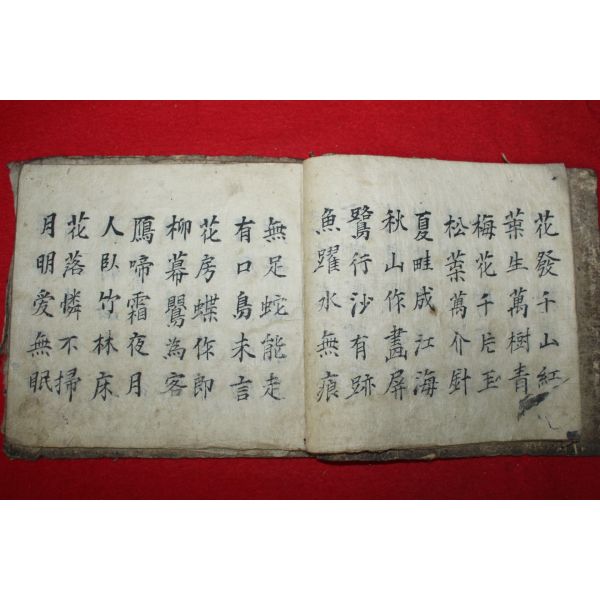 花發千山紅
葉生萬樹青
梅花千片玉
松葉萬介針
夏畦成江海
秋山作畵屏
鷺行沙有跡
魚躍水無痕
無足蛇能走
有口島未言
花房蝶作郎
柳幕鸎為客
鴈啼霜夜月
人臥竹林床
花落憐不掃
月明愛無眠